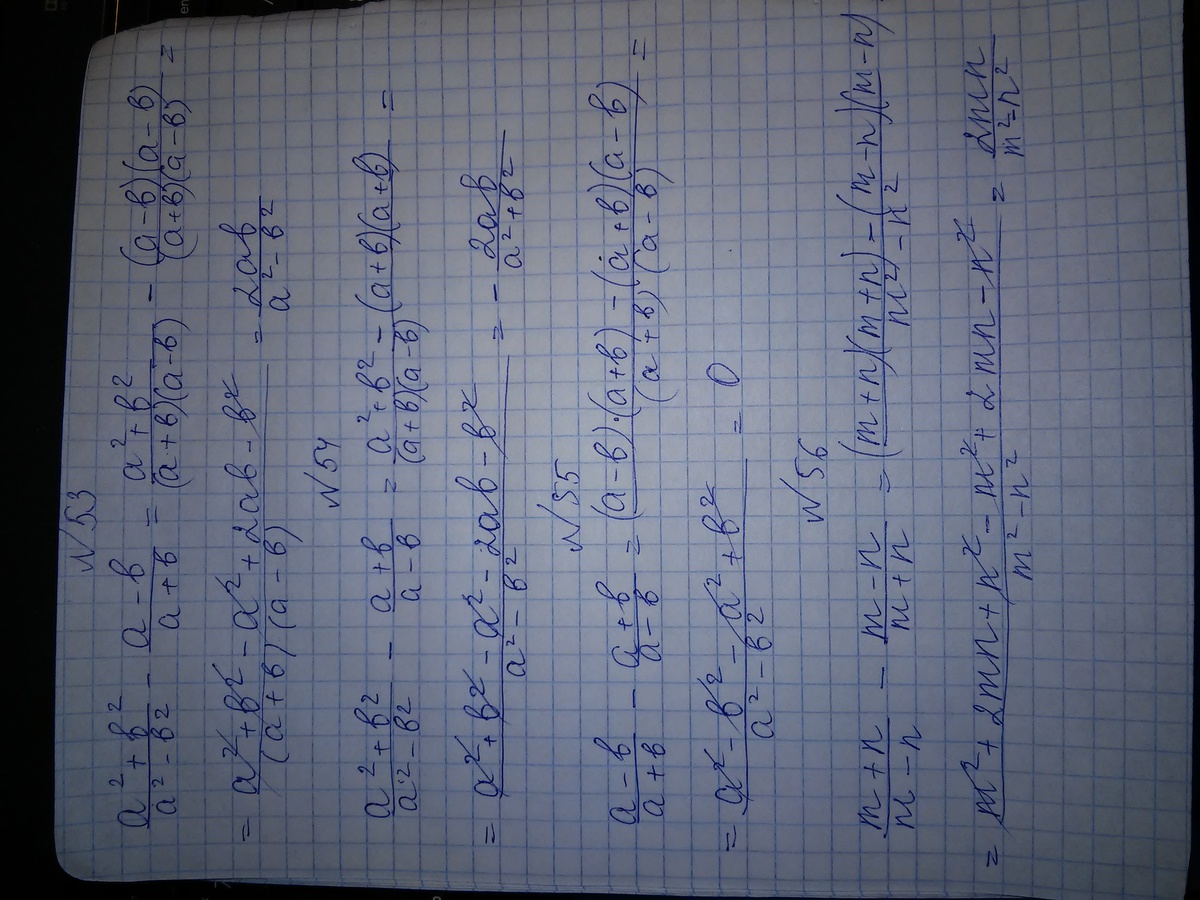 №53
\frac{a^2+b^2}{a^2-b^2} - \frac{a-b}{a+b} = \frac{a^2+b^2}{(a+b)(a-b)} - \frac{(a-b)(a-b)}{(a+b)(a-b)} =
= \frac{a^2+b^2-a^2+2ab-b^2}{(a+b)(a-b)} = \frac{2ab}{a^2-b^2}
№54
\frac{a^2+b^2}{a^2-b^2} - \frac{a+b}{a-b} = \frac{a^2+b^2-(a+b)(a+b)}{(a+b)(a-b)} =
= \frac{a^2+b^2-a^2-2ab-b^2}{a^2-b^2} = -\frac{2ab}{a^2+b^2}
№55
\frac{a-b}{a+b} - \frac{a+b}{a-b} = \frac{(a-b)·(a+b)-(a+b)(a-b)}{(a+b)(a-b)} =
= \frac{a^2-b^2-a^2+b^2}{a^2-b^2} = 0
№56
\frac{m+n}{m-n} - \frac{m-n}{m+n} = \frac{(m+n)(m+n)-(m-n)(m-n)}{m^2-n^2}
= \frac{m^2+2mn+n^2-m^2+2mn-n^2}{m^2-n^2} = \frac{2mn}{m^2-n^2}